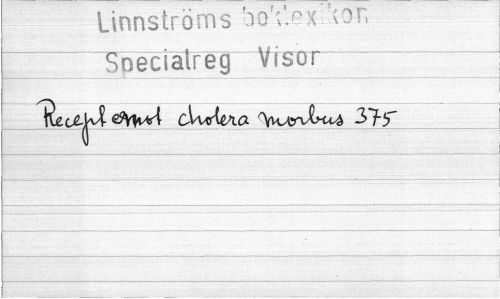 Linnströms boklexikon
Specialreg Visor
Recept emot cholera morbus 375